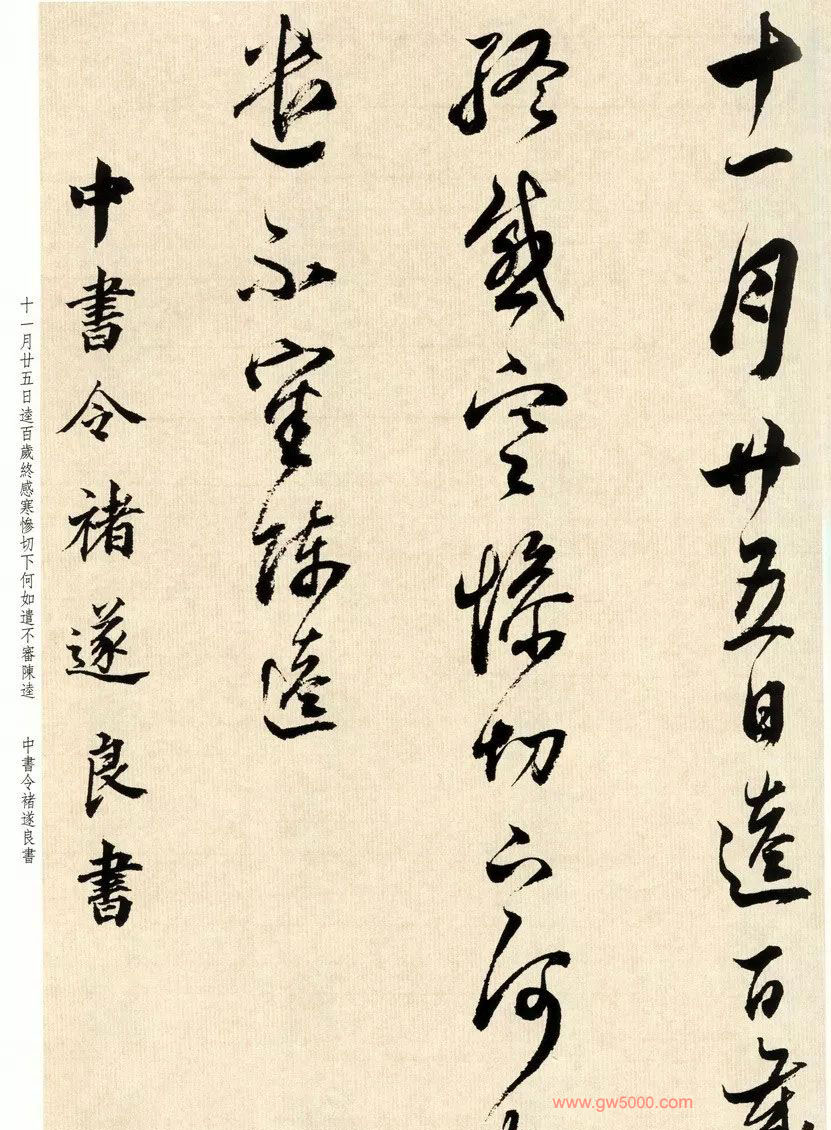 十一月廿五日逵百歲
終感寒慘切下何
遣不審陳逵
中書令褚遂良書
十一月廿五日逵百歲終感寒慘切下何如遣不審陳逵 中書令褚遂良書
www.gw5000.com